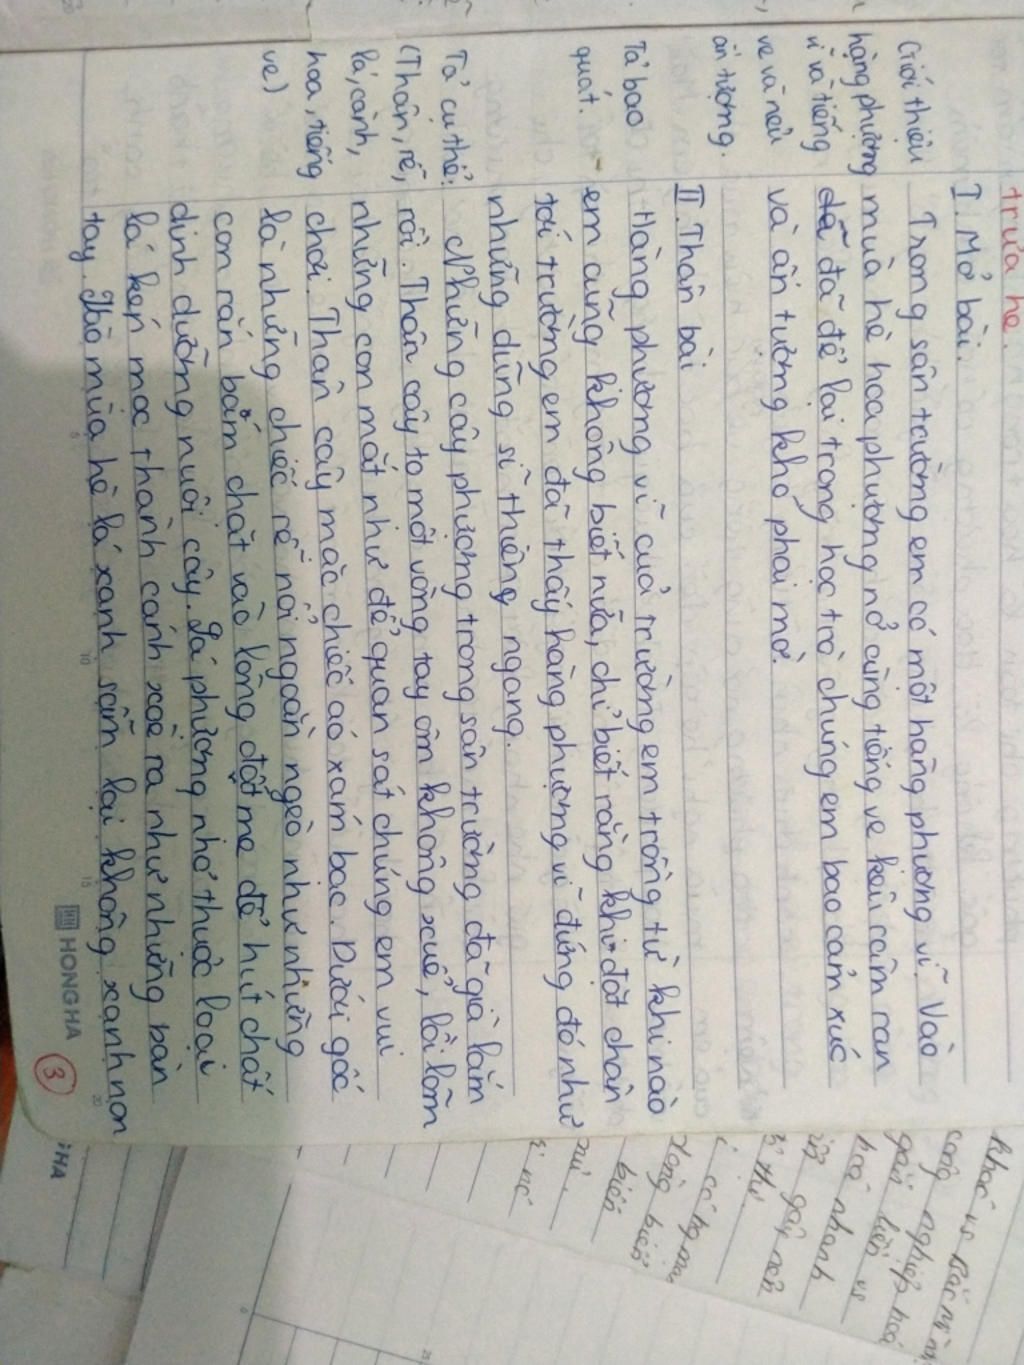 trưa hè.
I. Mở bài.
Giới thiệu
hàng phượng
vĩ và tiếng
ve và nêu
ấn tượng.
Trong sân trường em có một hàng phượng vĩ. Vào
mùa hè hoa phượng nở cùng tiếng ve kêu râm ran
đã đã để lại trong học trò chúng em bao cảm xúc
và ấn tượng khó phai mờ.
II. Thân bài
Tả bao
quát.
Hàng phượng vĩ của trường em trồng từ khi nào
em cũng không biết nữa, chỉ biết rằng khi đặt chân
tới trường em đã thấy hàng phượng vĩ đứng đó như
những dũng sĩ thiêng ngang.
Tả cụ thể:
(Thân, rễ,
lá, cành,
hoa, tiếng
ve)
Những cây phượng trong sân trường đã già lắm
rồi. Thân cây to một vòng tay ôm không xuể, lồi lõm
những con mắt như để quan sát chúng em vui
chơi. Thân cây mặc chiếc áo xám bạc. Dưới gốc
là những chiếc rễ nổi ngoằn ngèo như những
con rắn bám chặt vào lòng đất mẹ để hút chất
dinh dưỡng nuôi cây. Lá phượng nhỏ thuộc loại
lá kép mọc thành cánh xòe ra như những bàn
tay. Vào mùa hè lá xanh sẫm lại không xanh non
HONGHA
3
HA